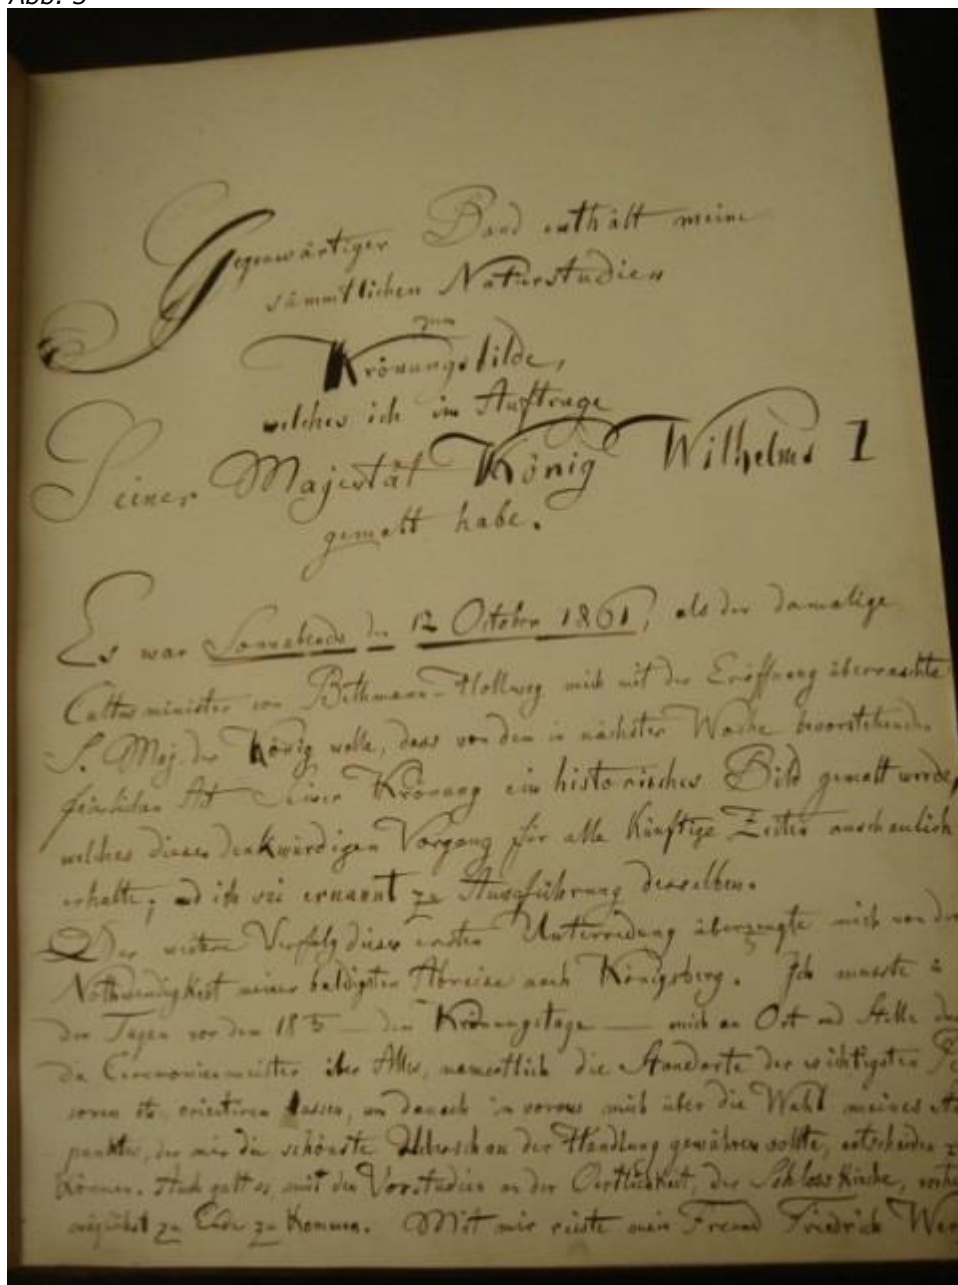 Abb. 3
Gegenwärtiger Band enthält meine
sämmtlichen Naturstudien
zum
Krönungsbilde,
welches ich im Auftrage
Seiner Majestät König Wilhelms I
gemalt habe.
Es war Sonnabends den 12 October 1861, als der damalige
Cultusminister von Bethmann-Hollweg mich mit der Eröffnung überraschte
S. Maj. der König wolle, dass von dem in nächster Woche bevorstehenden
feierlichen Akt seiner Krönung ein historisches Bild gemalt werde,
welches diesen denkwürdigen Vorgang für alle künftige Zeiten anschaulich
erhalte; und ich sei ernannt zu Ausführung desselben.
Der weitere Verfolg dieser ersten Unterredung überzeugte mich von der
Nothwendigkeit meiner baldigsten Abreise nach Königsberg. Ich musste in
den Tagen vor dem 18 — dem Krönungstage — mich an Ort und Stelle durch
die Ceremonienmeister über Alles, namentlich die Standorte der wichtigsten Per
sonen etc. orientiren lassen, um danach im voraus mich über die Wahl meines
punktes, der mir die schönste Ueberschau der Handlung gewähren sollte, entscheiden zu
können. Auch galt es, mit den Vorstudien an der Oertlichkeit, der Schlosskirche, vorher
möglichst zu Ende zu kommen. Mit mir reiste mein Freund Friedrich Wer